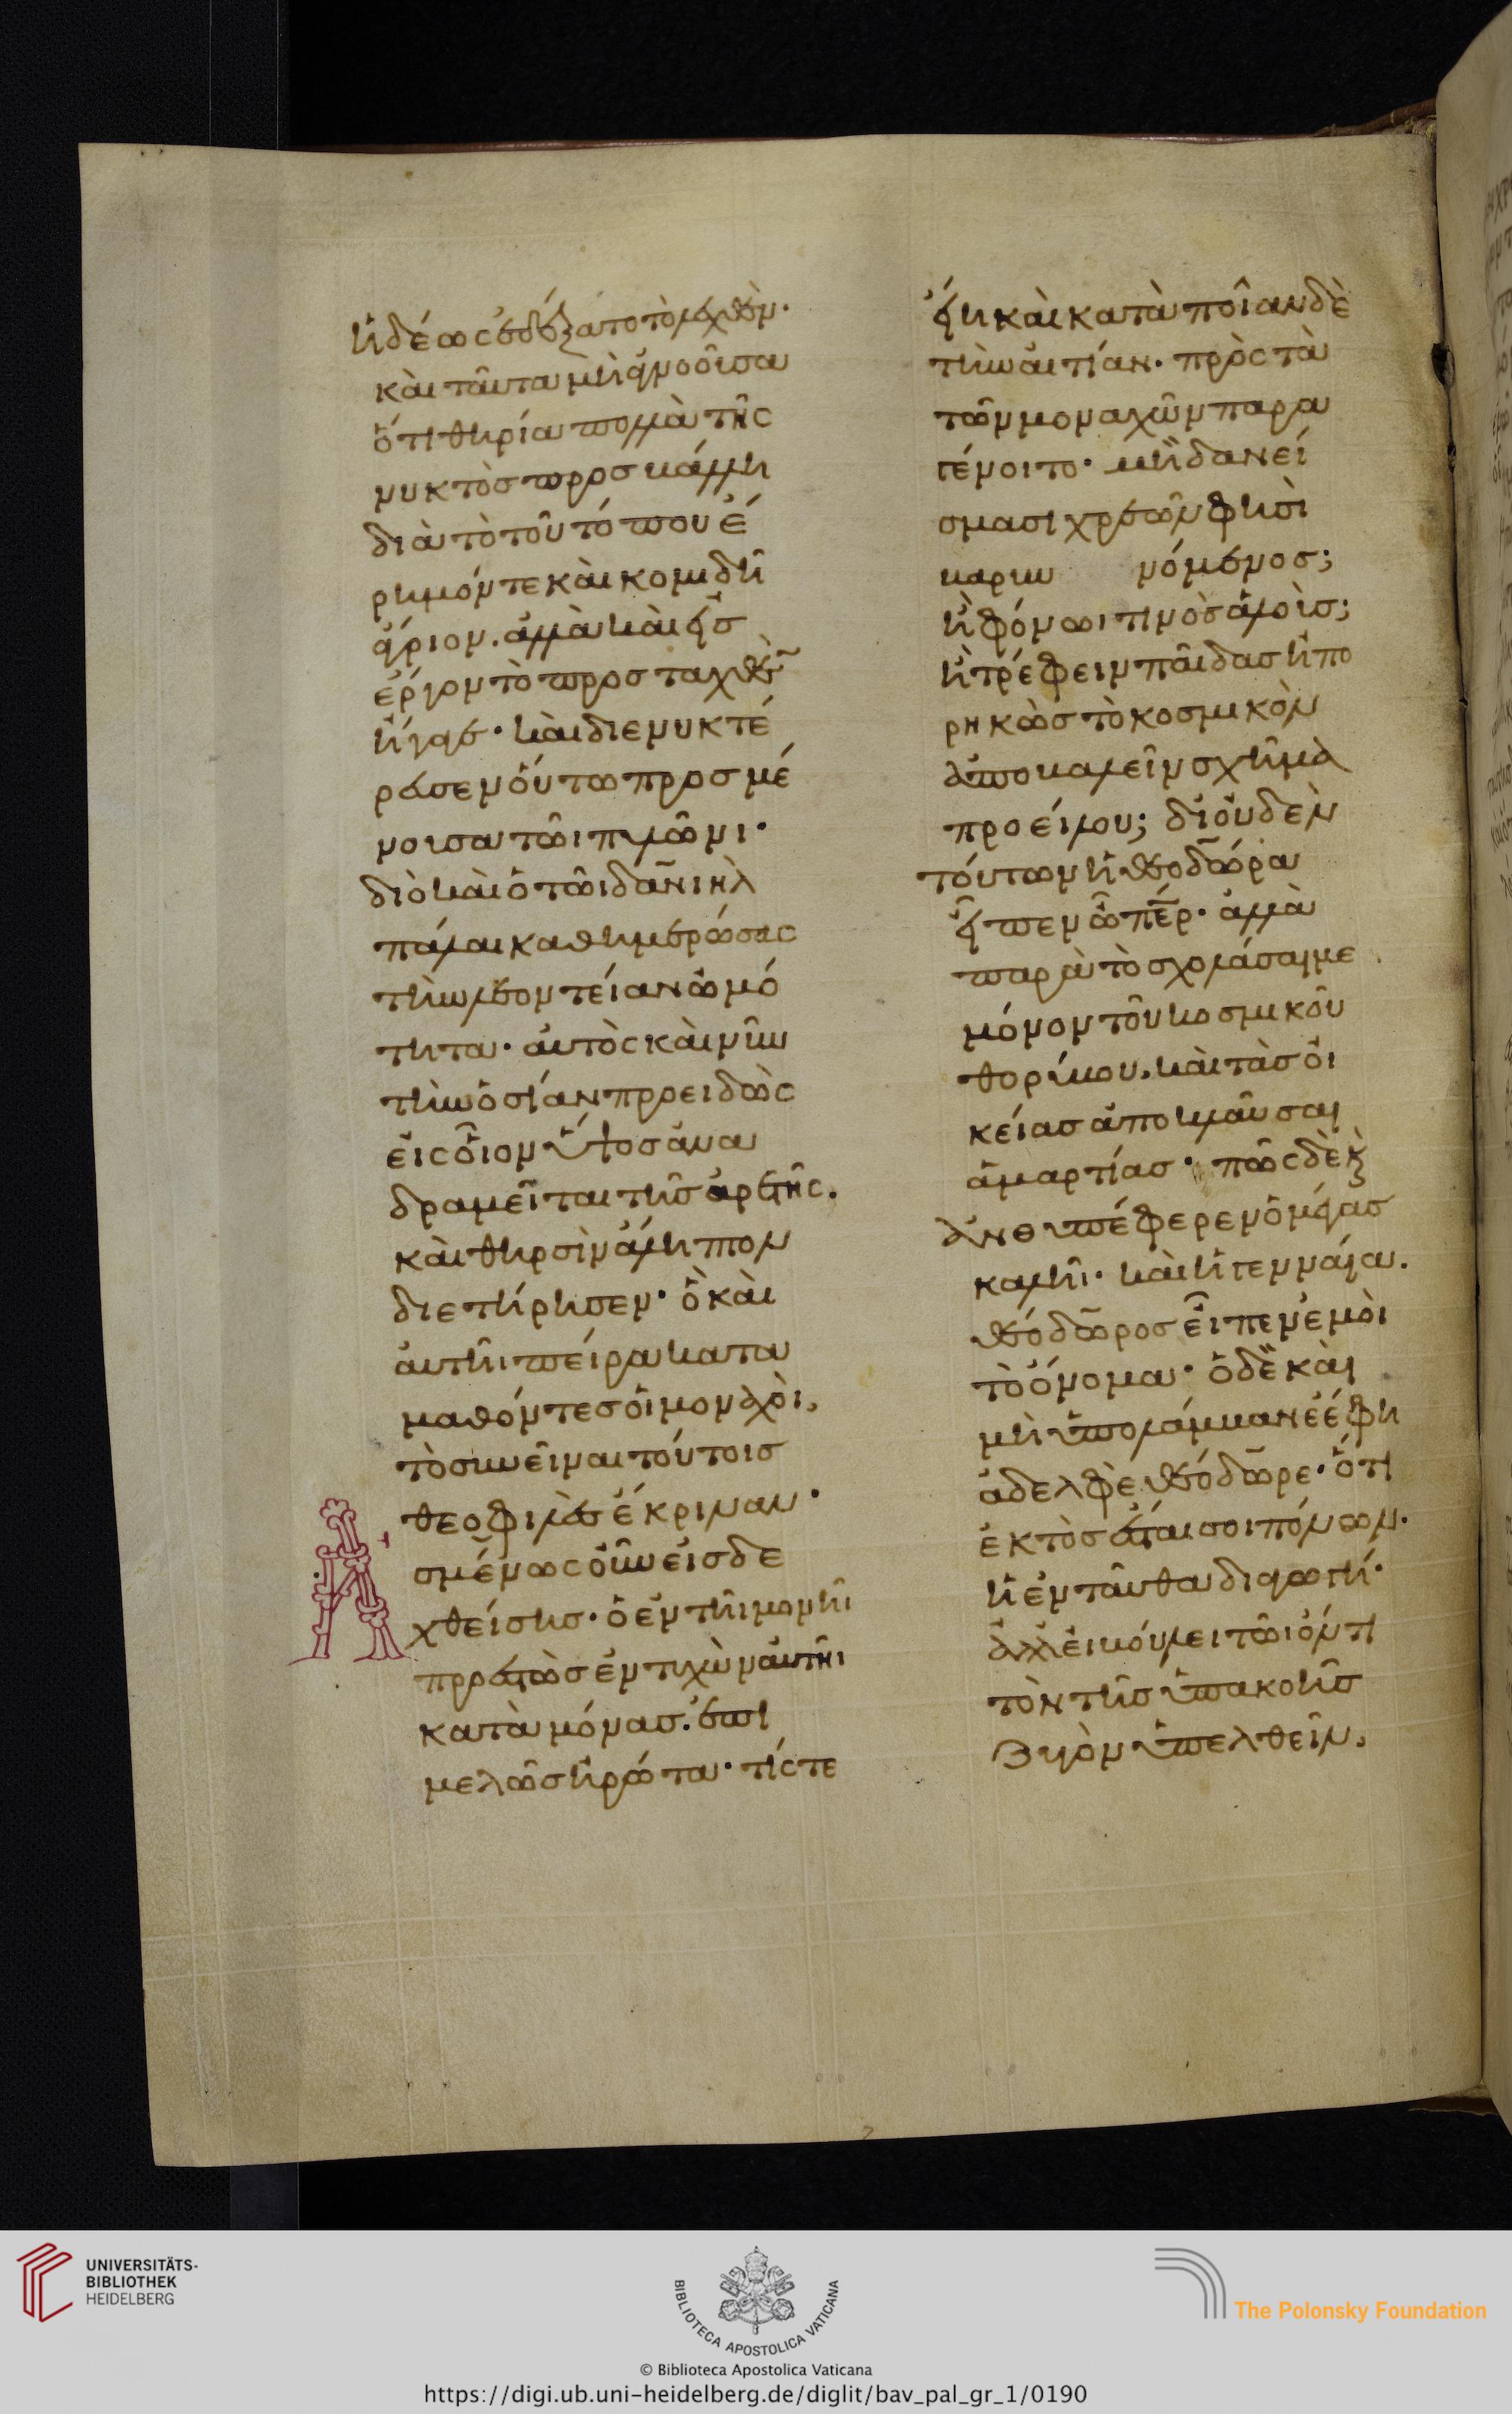 ἡδέως ἐδέξατο τὸ λεχθέν·
καὶ ταῦτα μὴ ἀγνοοῦσα
ὅτι θηρία πολλὰ τῆς
νυκτὸς προσβάλλει
διὰ τὸ τοῦ τόπου ἔ
ρημόν τε καὶ κομιδῆ
ἄγριον. ἀλλὰ καὶ εἰς
ἔργον τὸ προσταχθὲν
ἦγε· καὶ διενυκτέ
ρευσεν οὕτω προσμέ
νουσα τῶι πυλῶνι·
διὸ καὶ ὁ τῶι δανιὴλ
πάλαι καθημερώσας
τὴν λεοντείαν ὠμό
τητα· αὐτὸς καὶ νῦν
τὴν ὁσίαν προειδὼς
εἰς οἷον ὕψος ἀνα
δραμεῖται τῆς ἀρετῆς.
καὶ θηρσὶν ἄληπτον
διετήρησεν· ὃ καὶ
αὐτῆι πείρα κατα
μαθόντες οἱ μοναχοὶ,
τὸ συνεῖναι τούτοις
θεοφιλὲς ἔκριναν·
Ἀσμένως οὖν εἰσδε
χθείσης· ὁ ἐν τῆι μονῆι
προεστὼς ἐντυχὼν αὐτῆι
κατὰ μόνας. ἐπι
μελῶς ἠρώτα· τίς τε
εἴη καὶ κατὰ ποῖαν δὲ
τὴν αἰτίαν· πρὸς τὰ
τῶν μοναχῶν παρα
γένοιτο· μὴ δανεί
σμασι χρεῶν φησὶ
βαρυ νόμενος;
ἢ φόνωι τινὸς ἁλοὶς;
ἢ τρέφειν παῖδας ἠπο
ρηκὼς τὸ κοσμικὸν
ἀποβαλεῖν σχῆμα
προείλου; δι' οὐδὲν
τούτων ἡ θεοδώρα
εἶπεν ὦ περ· ἀλλὰ
παρὰ τὸ σχολάσαι με
μόνον τοῦ κοσμικοῦ
θορύβου. καὶ τὰς οἰ
κείας ἀποκλαῦσαι
ἁμαρτίας· πῶς δὲ κ
ἀνθυπέφερεν ὁ μέγας
καλῆι· καὶ ἡ γενναία.
θεόδωρος εἶπεν ἐμοὶ
τὸ ὄνομα· ὁ δὲ καὶ
μὴ ὑπολάμβανε ἔφη
ἀδελφὲ θεόδωρε· ὅτι
ἐκτὸς ἔσται σοι πόνων·
ἡ ἐνταῦθα διαγωγή·
ἀλλ' εἰ βούλει τῶι ὄντι
τὸν τῆς ὑπακοῆς
ζυγὸν ὑπελθεῖν.
UNIVERSITÄTS-
BIBLIOTHEK
HEIDELBERG
BIBLIOTECA APOSTOLICA VATICANA
The Polonsky Foundation
© Biblioteca Apostolica Vaticana
https://digi.ub.uni-heidelberg.de/diglit/bav_pal_gr_1/0190